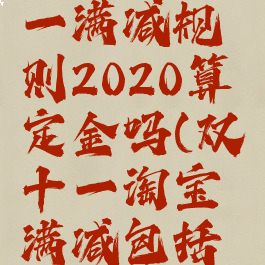 一满减规
则2020算
定金吗(双
十一淘宝
满减包括